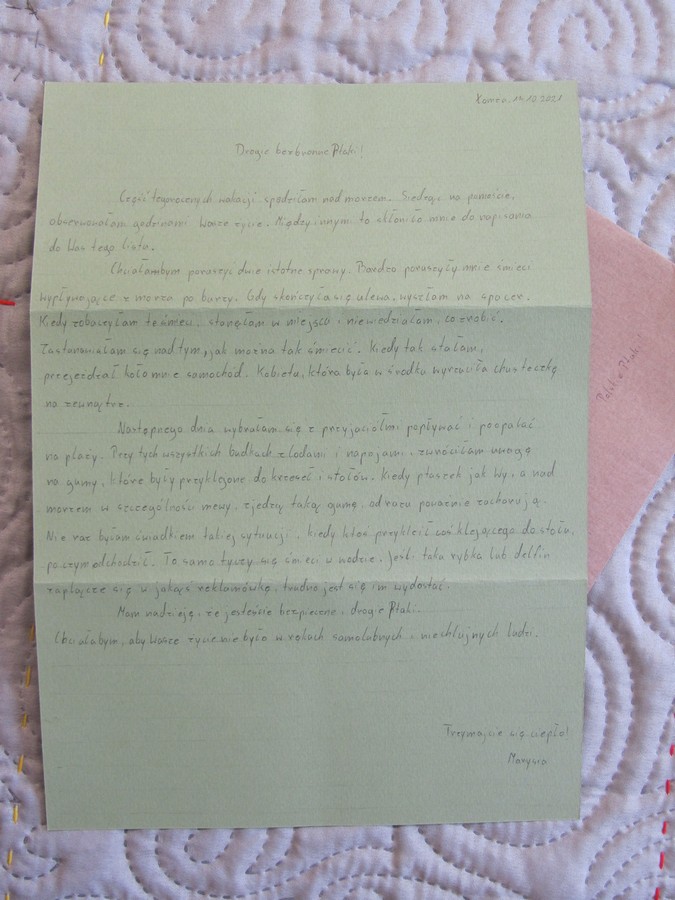 Łomża, 14.10.2021
Drogie bezbronne Ptaki!
Część tegorocznych wakacji spędziłam nad morzem. Siedząc na pomoście,
obserwowałam godzinami Wasze życie. Między innymi to skłoniło mnie do napisania
do Was tego listu.
Chciałambym poruszyć dwie istotne sprawy. Bardzo poruszyły mnie śmieci
wypływające z morza po burzy. Gdy skończyła się ulewa, wyszłam na spacer.
Kiedy zobaczyłam te śmieci, stanęłam w miejscu i niewiedziałam, co zrobić.
Zastanawiałam się nad tym, jak można tak śmiecić. Kiedy tak stałam,
przejeżdżał koło mnie samochód. Kobieta, która była w środku wyrzuciła chusteczkę
na zewnątrz.
Następnego dnia wybrałam się z przyjaciółmi popływać i poopalać
na plaży. Przy tych wszystkich budkach z lodami i napojami, zwróciłam uwagę
na gumy, które były przyklejone do krzeseł i stołów. Kiedy ptaszek jak Wy, a nad
morzem w szczególności mewy, zjedzą taką gumę, od razu poważnie zachorują.
Nie raz byłam świadkiem takiej sytuacji, kiedy ktoś przykleił coś klejącego do stołu,
po czym odchodził. To samo tyczy się śmieci w wodzie. Jeśli taka rybka lub delfin
zaplącze się w jakąś reklamówkę, trudno jest się im wydostać.
Mam nadzieję, że jesteście bezpieczne, drogie Ptaki.
Chciałabym, aby Wasze życie nie było w rękach samolubnych i niechlujnych ludzi.
Trzymajcie się ciepło!
Marysia
Polskie Ptaki!